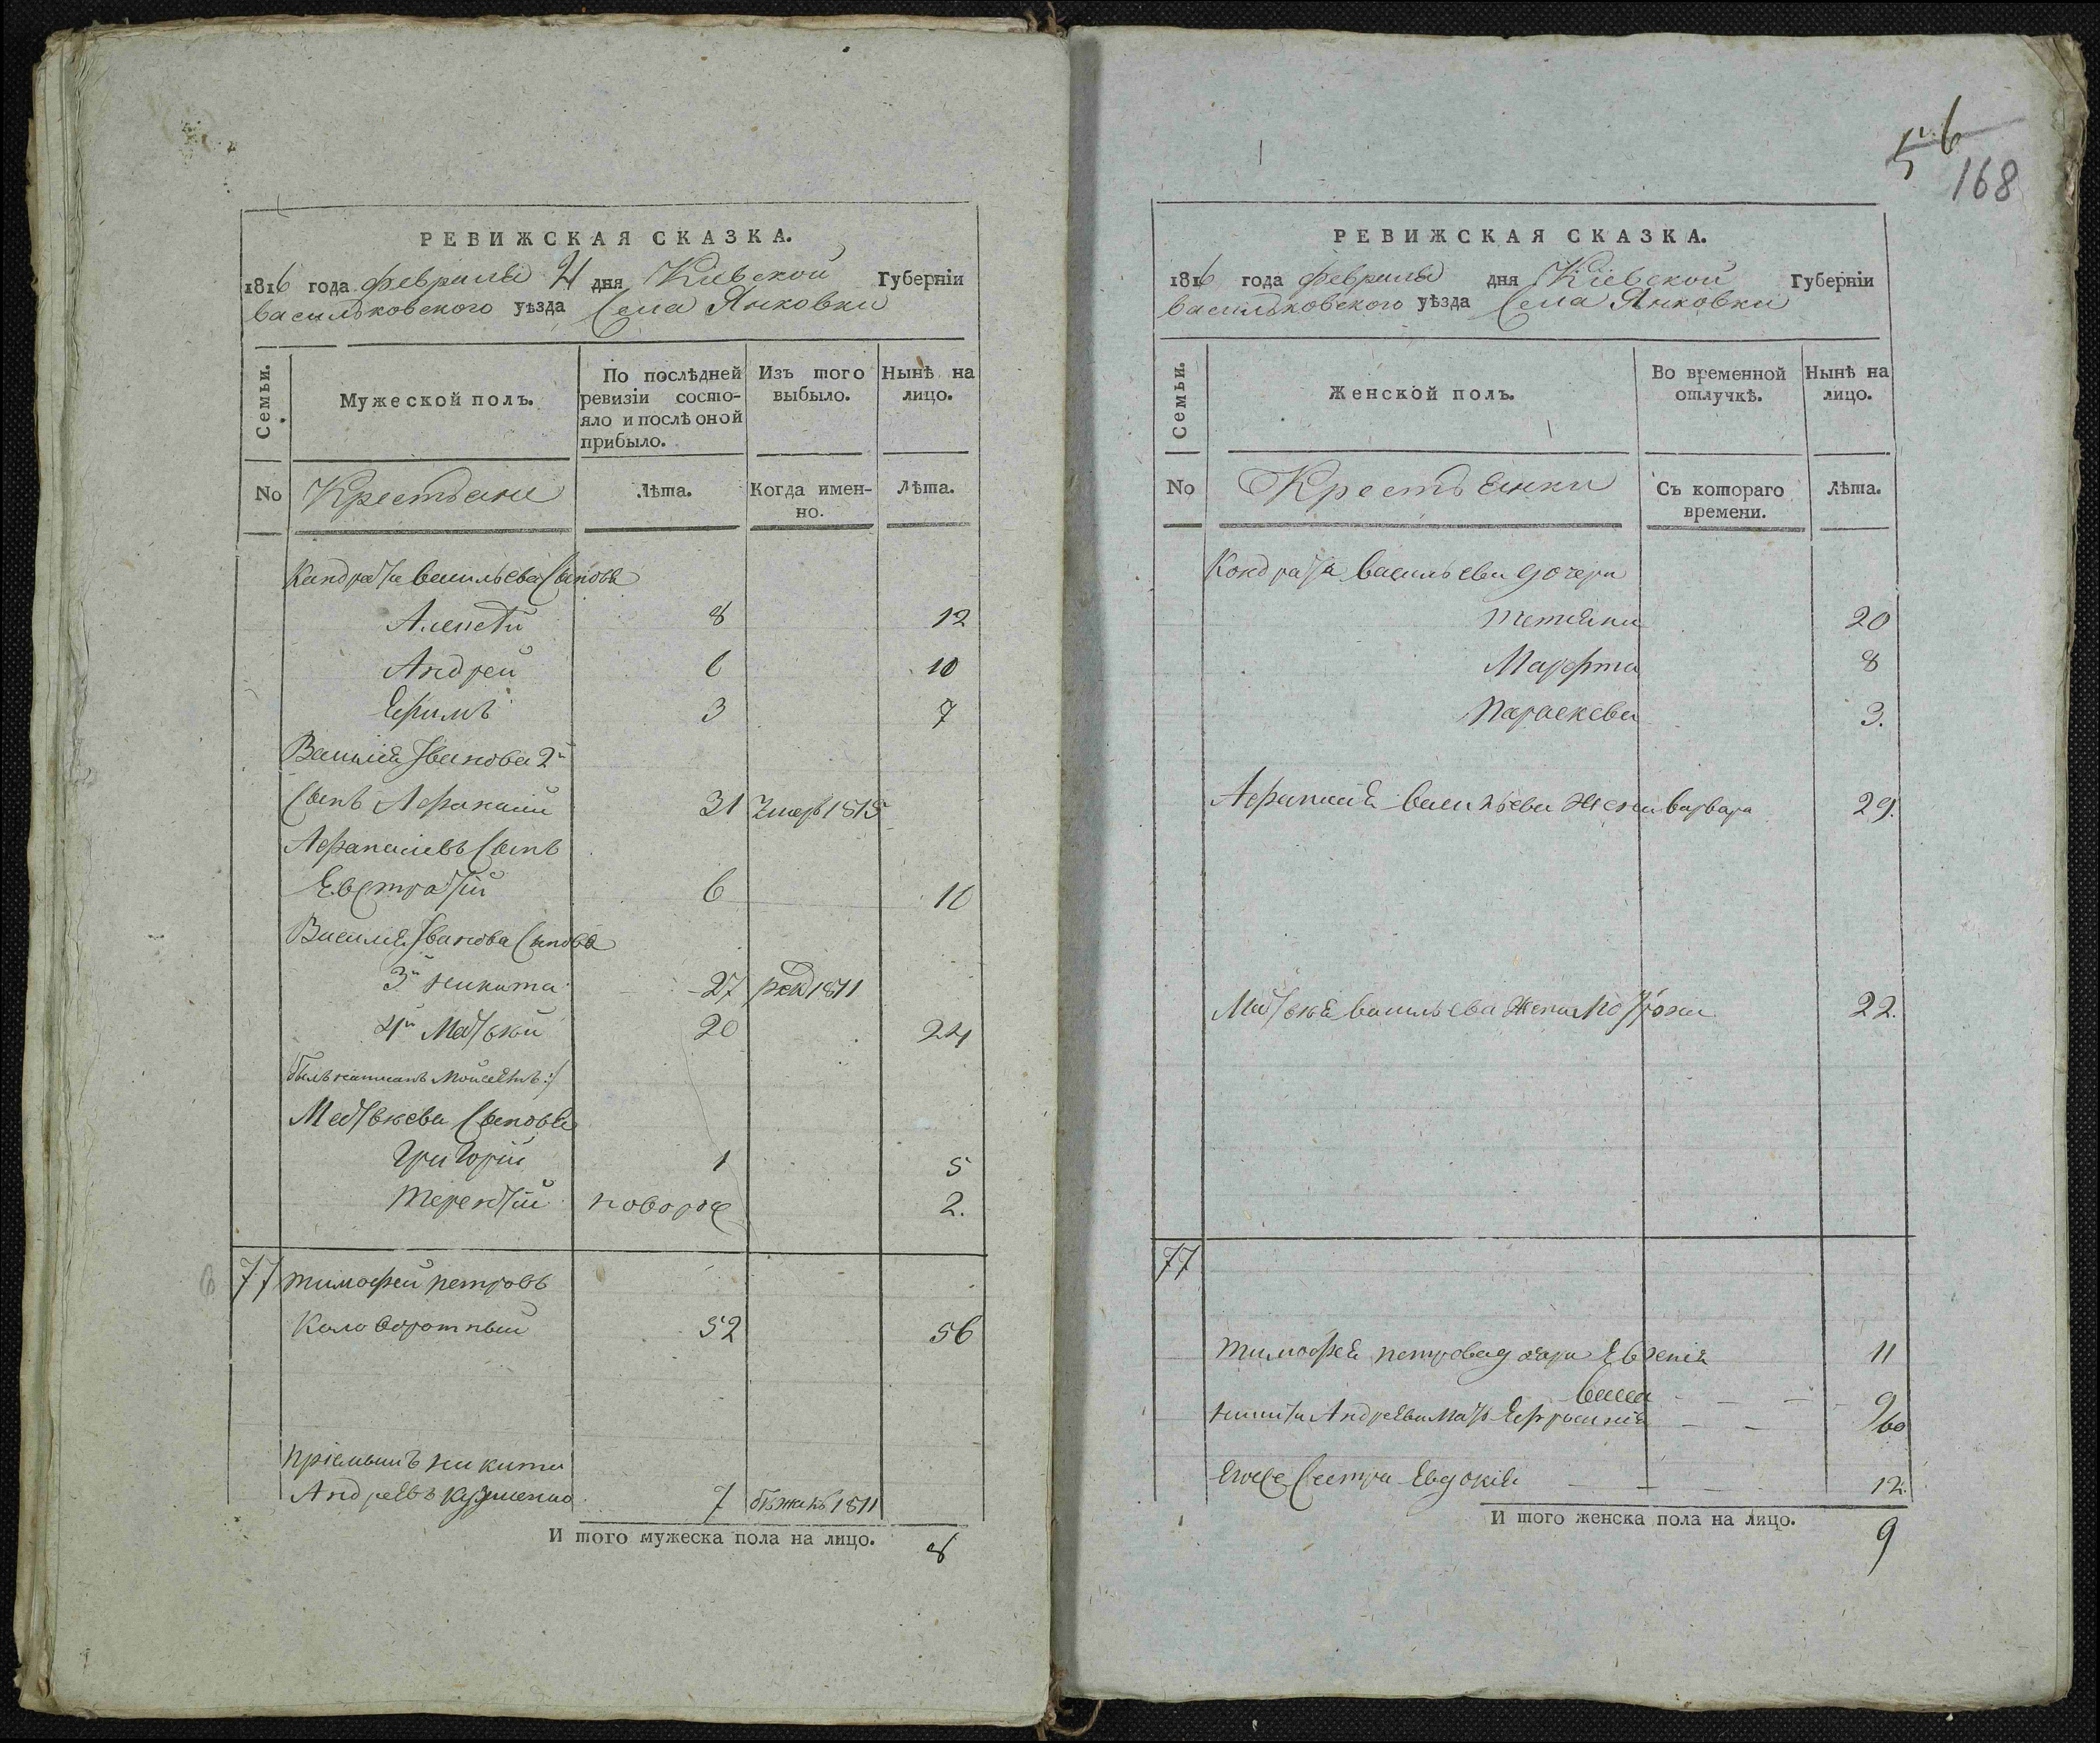 РЕВИЖСКАЯ СКАЗКА.
1816 года февраля 21 дня Кіевской Губерніи
васильковского уѣзда Села Янковки
Семьи.
Мужеской полъ.
По послѣдней ревизіи состояло и послѣ оной прибыло.
Изъ того выбыло.
Нынѣ на лицо.
No Крестьяне Лѣта. Когда именно. Лѣта.
Кандрата васильева Сыновя
Алексѣй 8 12
Андрей 6 10
Ефимъ 3 7
Василия Иванова 2й
Сынъ Афанасий 31 умеръ 1815
Афанасиевъ Сынъ
Евстратій 6 10
Василия Иванова Сыновя
3й никита 27 рек 1811
4й Матвѣй 20 24
былъ написанъ Мойсеемъ:/
Матвѣева Сыновя
Григорій 1 5
Терентій новорож 2.
77 тимофей петровъ
Коловоротный 52 56
пріемышъ никита
Андреевъ 7 бѣжалъ 1811
И того мужеска пола на лицо. 8
56
168
РЕВИЖСКАЯ СКАЗКА.
1816 года февраля дня Кіевской Губерніи
васильковского уѣзда Села Янковки
Семьи.
Женской полъ.
Во временной отлучкѣ.
Нынѣ на лицо.
No Крестьянки Съ котораго времени. Лѣта.
Кондрата васильева дочери
тетяна 20
Марфта 8
параскева 3.
Афанасия васильева жена варвара 29.
Матвѣя васильева жена 22.
77
тимофея петрова дочри Евгения 11
васса 9
никиты Андреева мать Ефросиния 60
Его Сестра Евдокия 12.
И того женска пола на лицо. 9